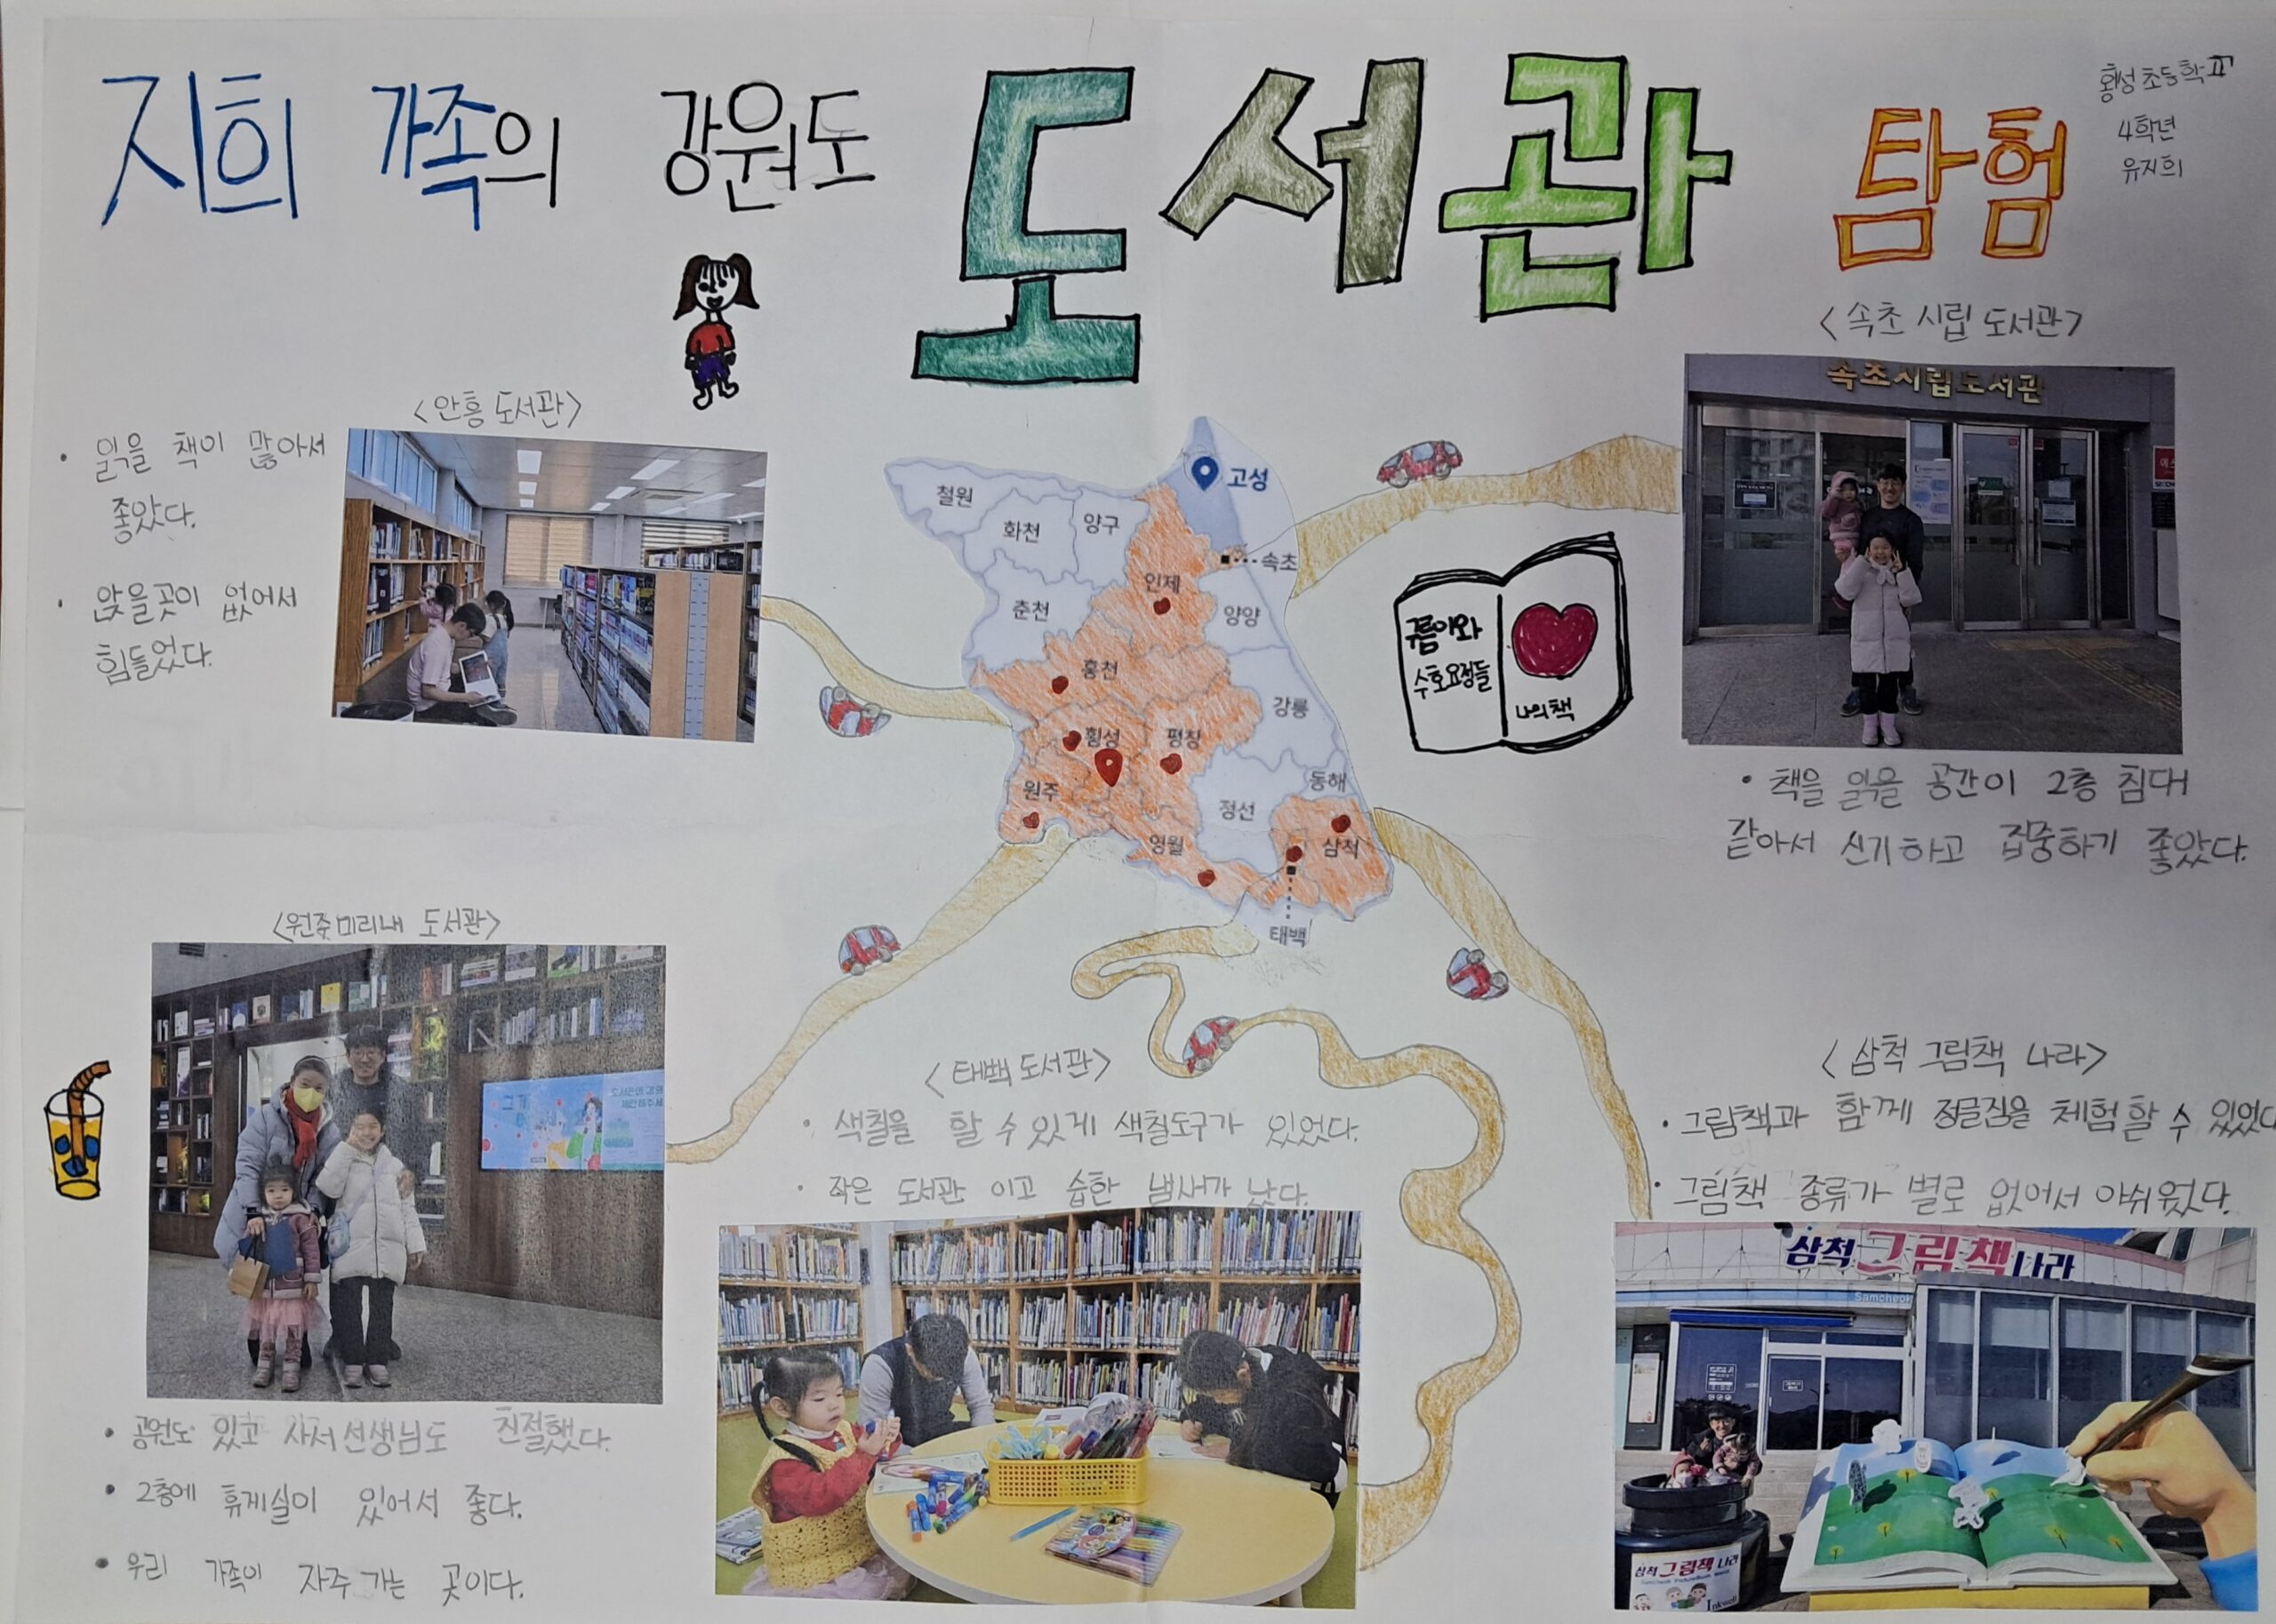 지희 가족의 강원도 도서관 탐험
횡성 초등학교
4학년
유지희
<안흥 도서관>
• 읽을 책이 많아서
좋았다.
• 앉을곳이 없어서
힘들었다.
<속초 시립 도서관>
속초시립도서관
• 책을 읽을 공간이 2층 침대
같아서 신기하고 집중하기 좋았다.
고성
철원
화천
양구
속초
인제
춘천
양양
홍천
강릉
횡성
평창
원주
동해
정선
영월
삼척
태백
구름이와
수호요정들
나의책
<원주미리내 도서관>
• 공원도 있고 사서선생님도 친절했다.
• 2층에 휴게실이 있어서 좋다.
• 우리 가족이 자주 가는 곳이다.
<태백 도서관>
• 색칠을 할 수 있게 색칠도구가 있었다.
• 작은 도서관 이고 습한 냄새가 났다.
<삼척 그림책 나라>
• 그림책과 함께 정글짐을 체험할 수 있었다
• 그림책 종류가 별로 없어서 아쉬웠다.
삼척 그림책 나라
Samcheok
삼척 그림책 나라
Inkwell